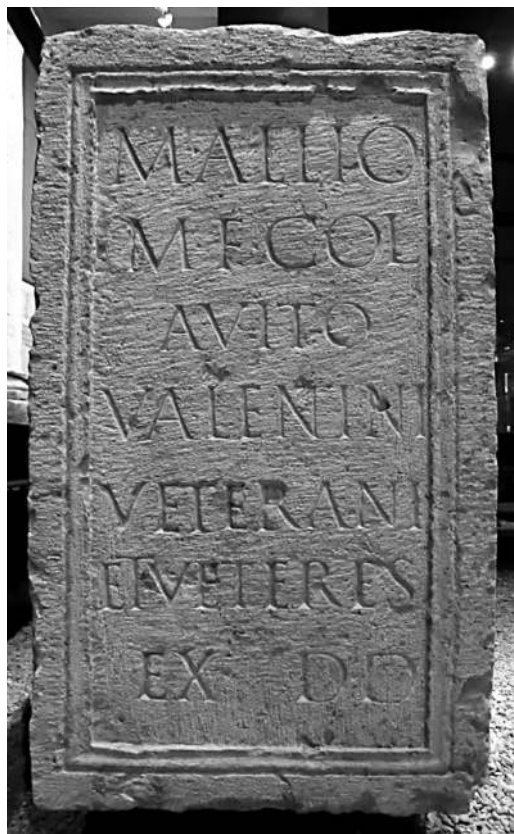 M ALLIO
M F COL
AVITO
VALENTINI
VETERANI
ET VETERES
EX D D